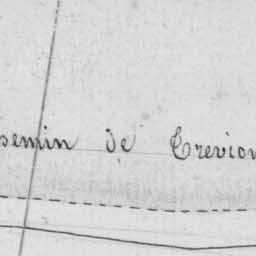 emin de Trevion